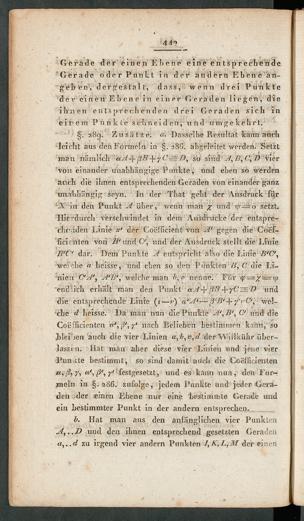 442
Gerade der einen Ebene eine entsprechende
Gerade oder Punkt in der andern Ebene an-
geben, dergestalt, dass, wenn drei Punkte
der einen Ebene in einer Geraden liegen, die
ihnen entsprechenden drei Geraden sich in
einem Punkte schneiden, und umgekehrt.
§. 289. Zusätze. a. Dasselbe Resultat kann auch
leicht aus den Formeln in §. 286. abgeleitet werden. Setzt
man nämlich αA+βB+γC≡D, so sind A, B, C, D vier
von einander unabhängige Punkte, und eben so werden
auch die ihnen entsprechenden Geraden von einander ganz
unabhängig seyn. In der That geht der Ausdruck für
X in den Punkt A über, wenn man χ und ψ=0 setzt.
Hierdurch verschwindet in dem Ausdrucke der entspre-
chenden Linie der Coëfficient von A' gegen die Coëf-
ficienten von B' und C', und der Ausdruck stellt die Linie
B'C' dar. Dem Punkte A entspricht also die Linie B'C',
welche a heisse, und eben so den Punkten B, C die Li-
nien C'A', A'B', welche man b, c nenne. Für φ=χ=ψ
endlich erhält man den Punkt αA+βB+γC≡D und
die entsprechende Linie α'A'+β'B'+γ'C', wel-
che d heisse. Da man nun die Punkte A', B', C' und die
Coëfficienten α', β', γ' nach Belieben bestimmen kann, so
bleiben auch die vier Linien a, b, c, d der Willkühr über-
lassen. Hat man aber diese vier Linien und jene vier
Punkte bestimmt, so sind damit auch die Coëfficienten
α, β, γ, α', β', γ' festgesetzt, und es kann nun, den For-
meln in §. 286. zufolge, jedem Punkte und jeder Gera-
den der einen Ebene nur eine bestimmte Gerade und
ein bestimmter Punkt in der andern entsprechen.
b. Hat man aus den anfänglichen vier Punkten
A,..D und den ihnen entsprechend gesetzten Geraden
a,..d zu irgend vier andern Punkten I, K, L, M der einen